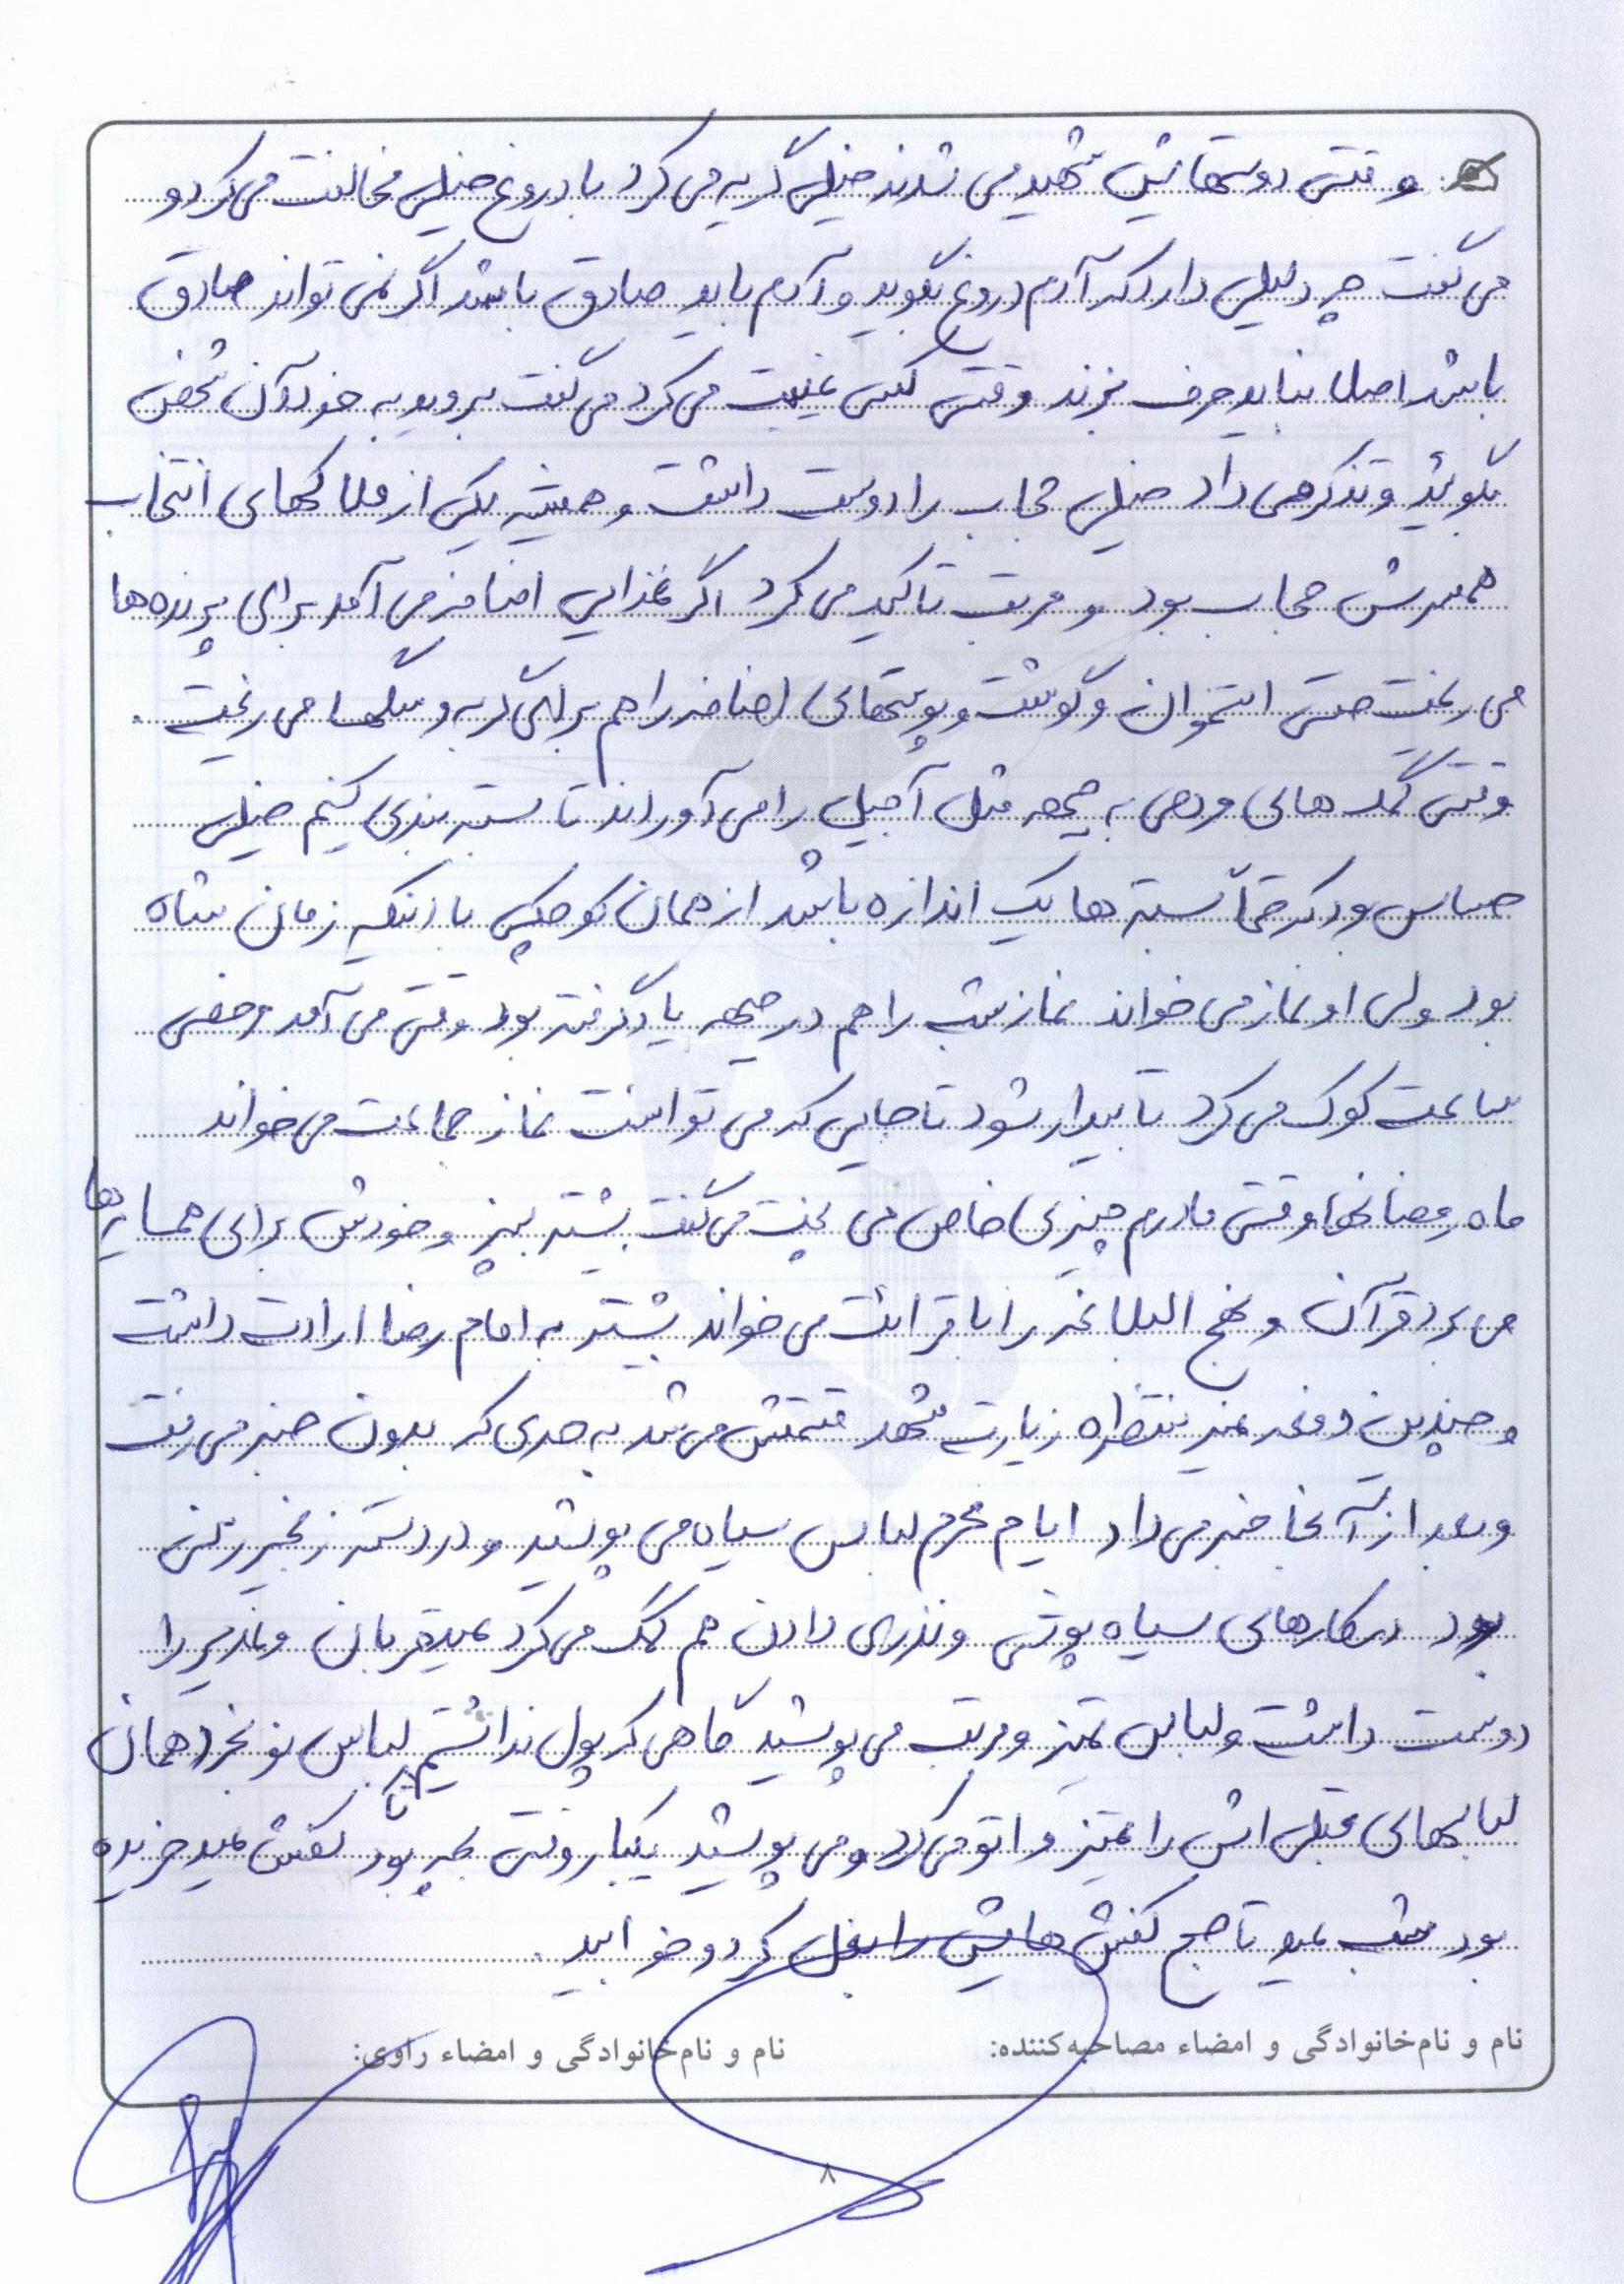 وقتی دوستهایش شهید می شدند خیلی گریه می کرد با دروغ خیلی مخالفت می کرد و
می گفت چه دلیلی دارد که آدم دروغ بگوید و آدم باید صادق باشد اگر نمی تواند صادق
باشد اصلا نباید حرف بزند وقتی کسی غیبت می کرد می گفت بروید به خود آن شخص
بگوئید و تذکر می داد خیلی حجاب را دوست داشت و همیشه یکی از ملاکهای انتخاب
همسرش حجاب بود و مرتب تاکید می کرد اگر غذایی اضافه می آمد برای پرنده ها
می ریخت حتی استخوان و گوشت و پوستهای اضافه را هم برای گربه و سگها می ریخت.
وقتی کمک های مردمی به جبهه مثل آجیل را می آوراند تا بسته بندی کنیم خیلی
حساس بود که حتماً بسته ها یک اندازه باشد از همان کوچکی با اینکه زمان شاه
بود ولی او نماز می خواند نماز شب را هم در جبهه یاد گرفته بود وقتی می آمد مرخصی
ساعت کوک می کرد تا بیدار شود تا جایی که می توانست نماز جماعت می خواند
ماه رمضانها وقتی مادرم چیزی خاص می پخت می گفت بیشتر بپز و خودش برای همسایه ها
می برد قرآن و نهج البلاغه را با قرائت می خواند بیشتر به امام رضا ارادت داشت
و چندین دفعه غیر منتظره زیارت مشهد قسمتش می شد به حدی که بدون خبر می رفت
و بعد از آنجا خبر می داد ایام محرم لباس سیاه می پوشید و در دسته زنجیر زنی
بود در کارهای سیاه پوشی و نذری دادن هم کمک می کرد عید قربان و غدیر را
دوست داشت و لباس تمیز و مرتب می پوشید گاهی که پول نداشتیم تا لباس نو بخرد همان
لباسهای قبلی اش را تمیز و اتو می کرد و می پوشید یکبار وقتی بچه بود کفش عید خریده
بود شب عید تا صبح کفش هایش را بغل کرد و خوابید.
نام و نام‌خانوادگی و امضاء مصاحبه‌کننده: نام و نام‌خانوادگی و امضاء راوی:
۸